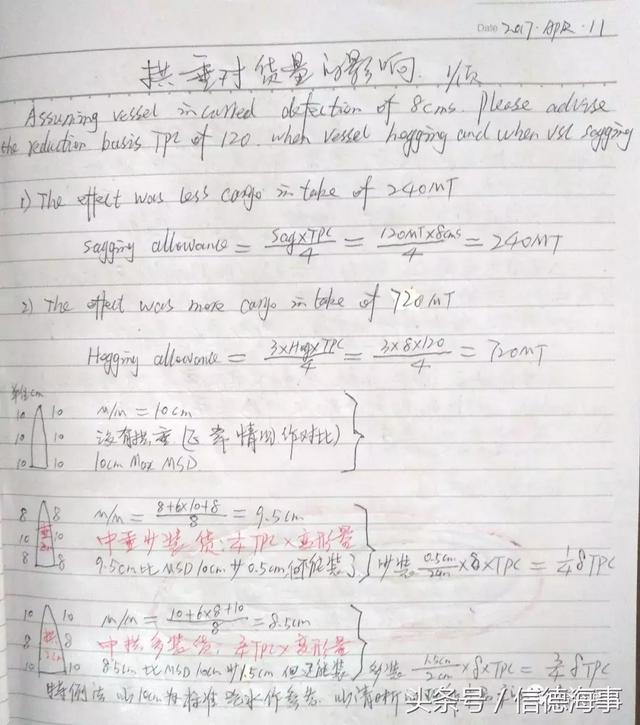 Date 2017.APR.11
拱垂对货量的影响. 1/1页
Assuming vessel incurred defection of 8cms. Please advise
the reduction basis TPC of 120. when vessel hogging and when vsl sagging
1) The effect was less cargo in take of 240MT
Sagging allowance = Sag×TPC/4 = 120MT×8cms/4 = 240MT
2) The effect was more cargo in take of 720MT
Hogging allowance = 3×Hog×TPC/4 = 3×8×120/4 = 720MT
单位cm
10 10 M/M = 10cm
10 10 没有拱垂(正常情况作对比)
10 10 10cm Max MSD
8 8 M/M = 8+6×10+8/8 = 9.5cm
10 垂 2cm 10 中垂少装货: 1/4 TPC×变形量
8 8 9.5cm比MSD 10cm少0.5cm但能装了 少装 0.5cm/2cm×δ×TPC = 1/4 δTPC
10 10 M/M = 10+6×8+10/8 = 8.5cm
8 拱 2cm 8 中拱多装货: 3/4 TPC×变形量
10 10 8.5cm比MSD 10cm少1.5cm但还能装 多装 1.5cm/2cm×δ×TPC = 3/4 δTPC
特例法 以10cm为标准吃水作参考.
头条号/信德海事